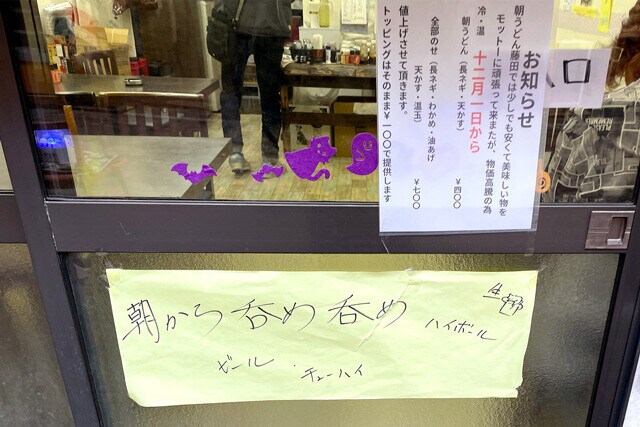 お知らせ
朝うどん藤田では少しでも安くて美味しい物を
モットーに頑張って来またが、物価高騰の為
十二月一日から
冷・温
朝うどん（長ネギ・天かす） ￥四〇〇
全部のせ（長ネギ・わかめ・油あげ
天かす・温玉） ￥七〇〇
値上げさせて頂きます。
トッピングはそのまま￥一〇〇で提供します
口
朝から呑め呑め
生
ハイボール
ビール・チューハイ